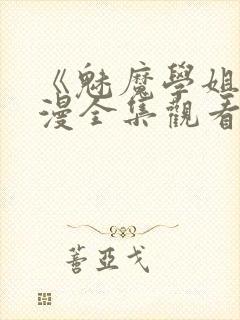 《魅魔學姐
漫全集觀看
蓍亞戈